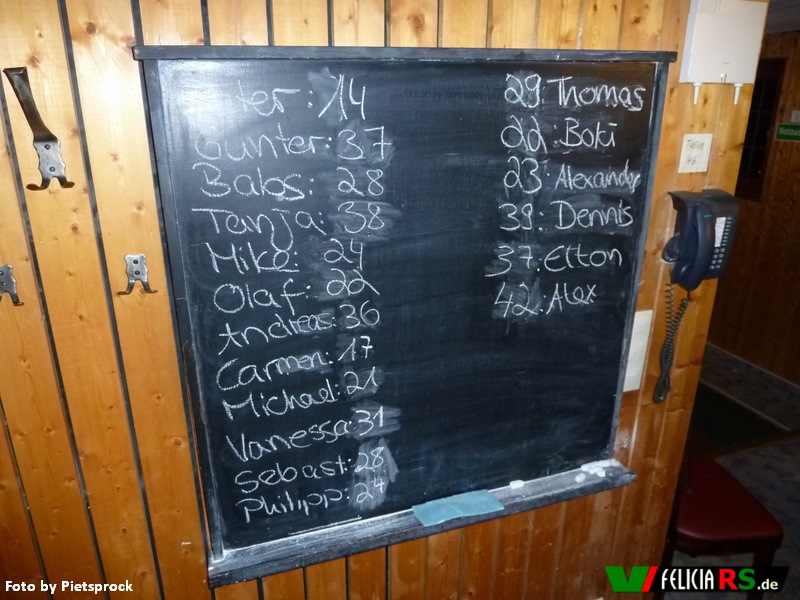 ter: 14
Gunter: 37
Babs: 28
Tanja: 38
Mike: 24
Olaf: 22
Andreas: 36
Carmen: 17
Michael: 21
Vanessa: 31
Sebast: 28
Philipp: 24
29: Thomas
22: Boki
23: Alexander
39: Dennis
37: Elton
42: Alex
Foto by Pietsprock
FELICIARS.de